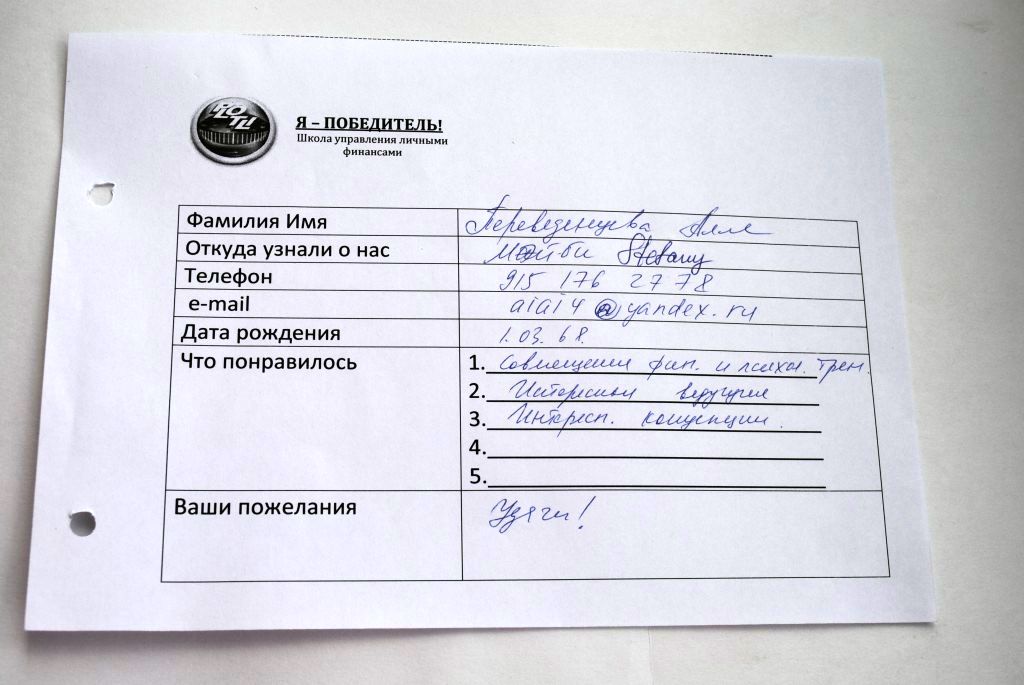 Я – ПОБЕДИТЕЛЬ!
Школа управления личными
финансами
Фамилия Имя Переведенцева Алла
Откуда узнали о нас Мэйби
Телефон 915 176 27 78
e-mail aiai4@yandex.ru
Дата рождения 1.03.68.
Что понравилось 1. Совмещение фин. и психол. трен.
2. Интересная ведущая
3. Интересн. концепции.
4.
5.
Ваши пожелания Удачи!